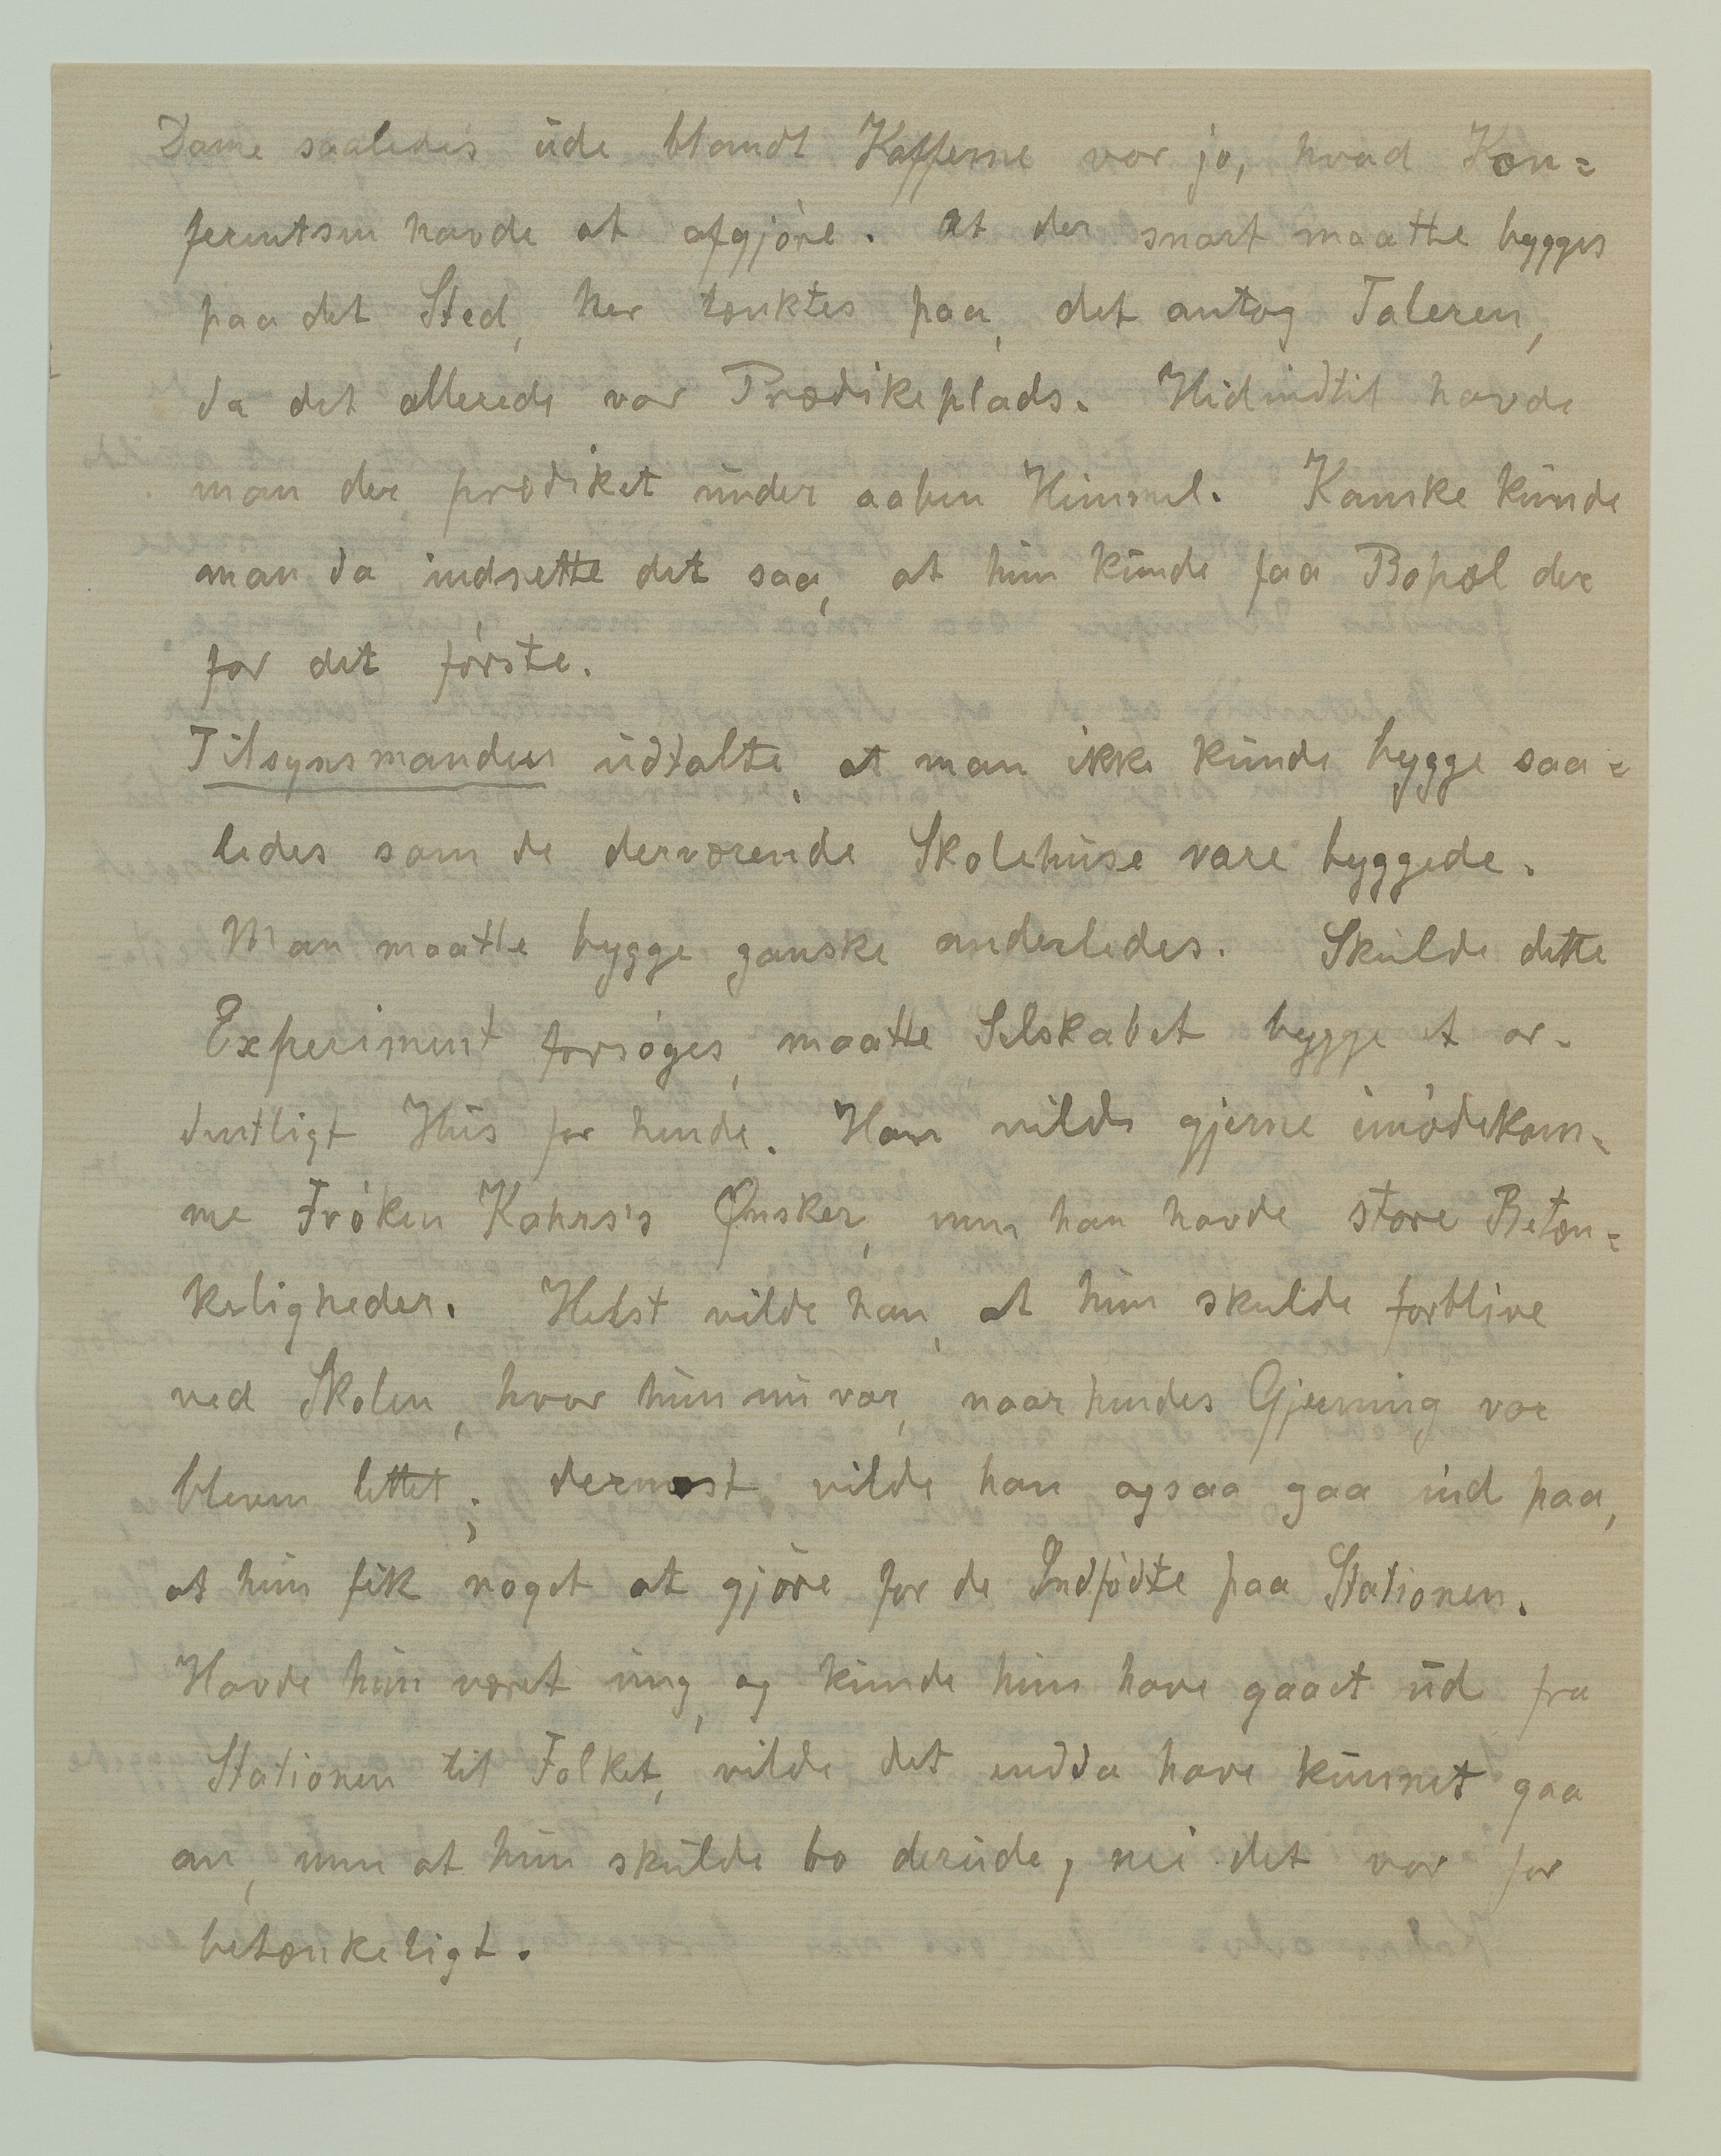 Dame saaledes ude blandt Kafferne var jo, hvad Kon=
ferentsen havde at afgjøre. At der snart maatte bygges
paa det Sted, her tænktes paa, det antog Taleren,
da det allerede var Prædikeplads. Hidindtil havde
man der prædiket under aaben Himmel. Kanske kunde
man da indrette det saa, at hun kunde faa Bopæl der
for det første.
Tilsynsmanden udtalte, at man ikke kunde bygge saa=
ledes som de derværende Skolehuse vare byggede.
Man maatte bygge ganske anderledes. Skulde dette
Experiment forsøges, maatte Selskabet bygge et or-
dentligt Hus for hende. Han vilde gjerne imødekom-
me Frøken Kahrs's Ønsker, men han havde store Betæn=
keligheder. Helst vilde han, at hun skulde forblive
ved Skolen, hvor hun nu var, naar hendes Gjerning var
bleven lettet; dernæst vilde han ogsaa gaa ind paa,
at hun fik noget at gjøre for de Indfødte paa Stationen.
Havde hun været ung, og kunde hun have gaaet ud fra
Stationen til Folket, vilde det endda have kunnet gaa
an, men at hun skulde bo derude, nei det var for
betænkeligt.